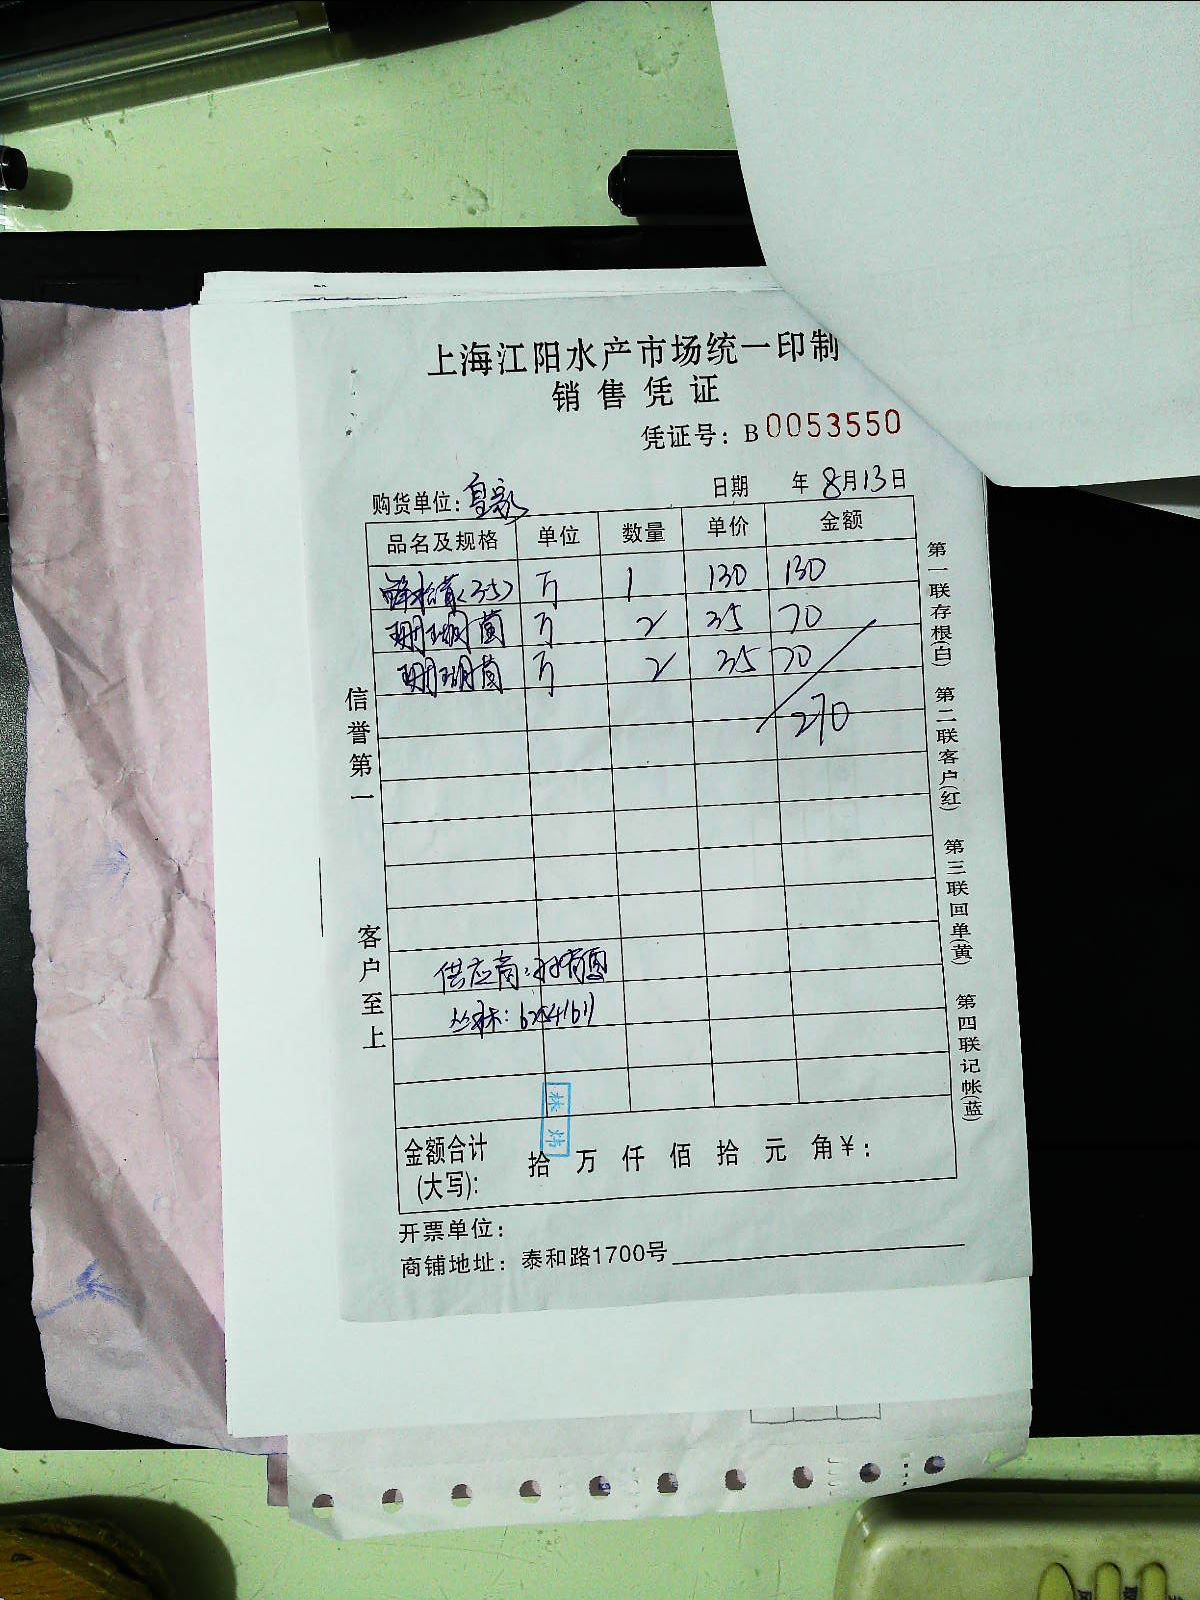 上海江阳水产市场统一印制
销售凭证
凭证号：B 0053550
购货单位：
日期 年 8月13日
品名及规格 单位 数量 单价 金额
(35) 1 130 130
珊瑚菌 2 35 70
珊瑚菌 2 35 70
270
供应商：
金额合计 拾 万 仟 佰 拾 元 角 ¥：
(大写)：
开票单位：
商铺地址：泰和路1700号
信誉第一
客户至上
第一联存根(白)
第二联客户(红)
第三联回单(黄)
第四联记帐(蓝)
林炜